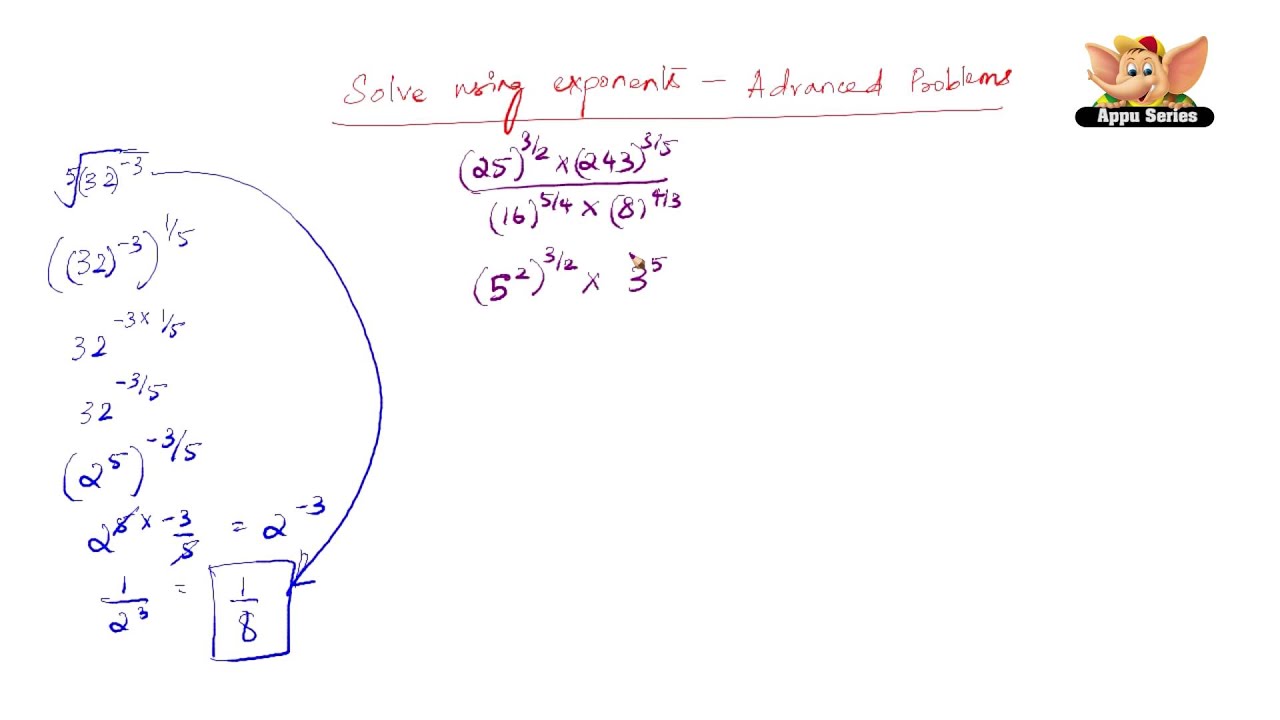 Solve using exponents – Advanced Problems
Appu Series
⁵√(32)⁻³
((32)⁻³)^1/5
32^-3 × 1/5
32^-3/5
(2⁵)^-3/5
2^5 × -3/5 = 2⁻³
1/2³ = 1/8
(25)^3/2 × (243)^3/5
(16)^5/4 × (8)^4/3
(5²)^3/2 × 3⁵